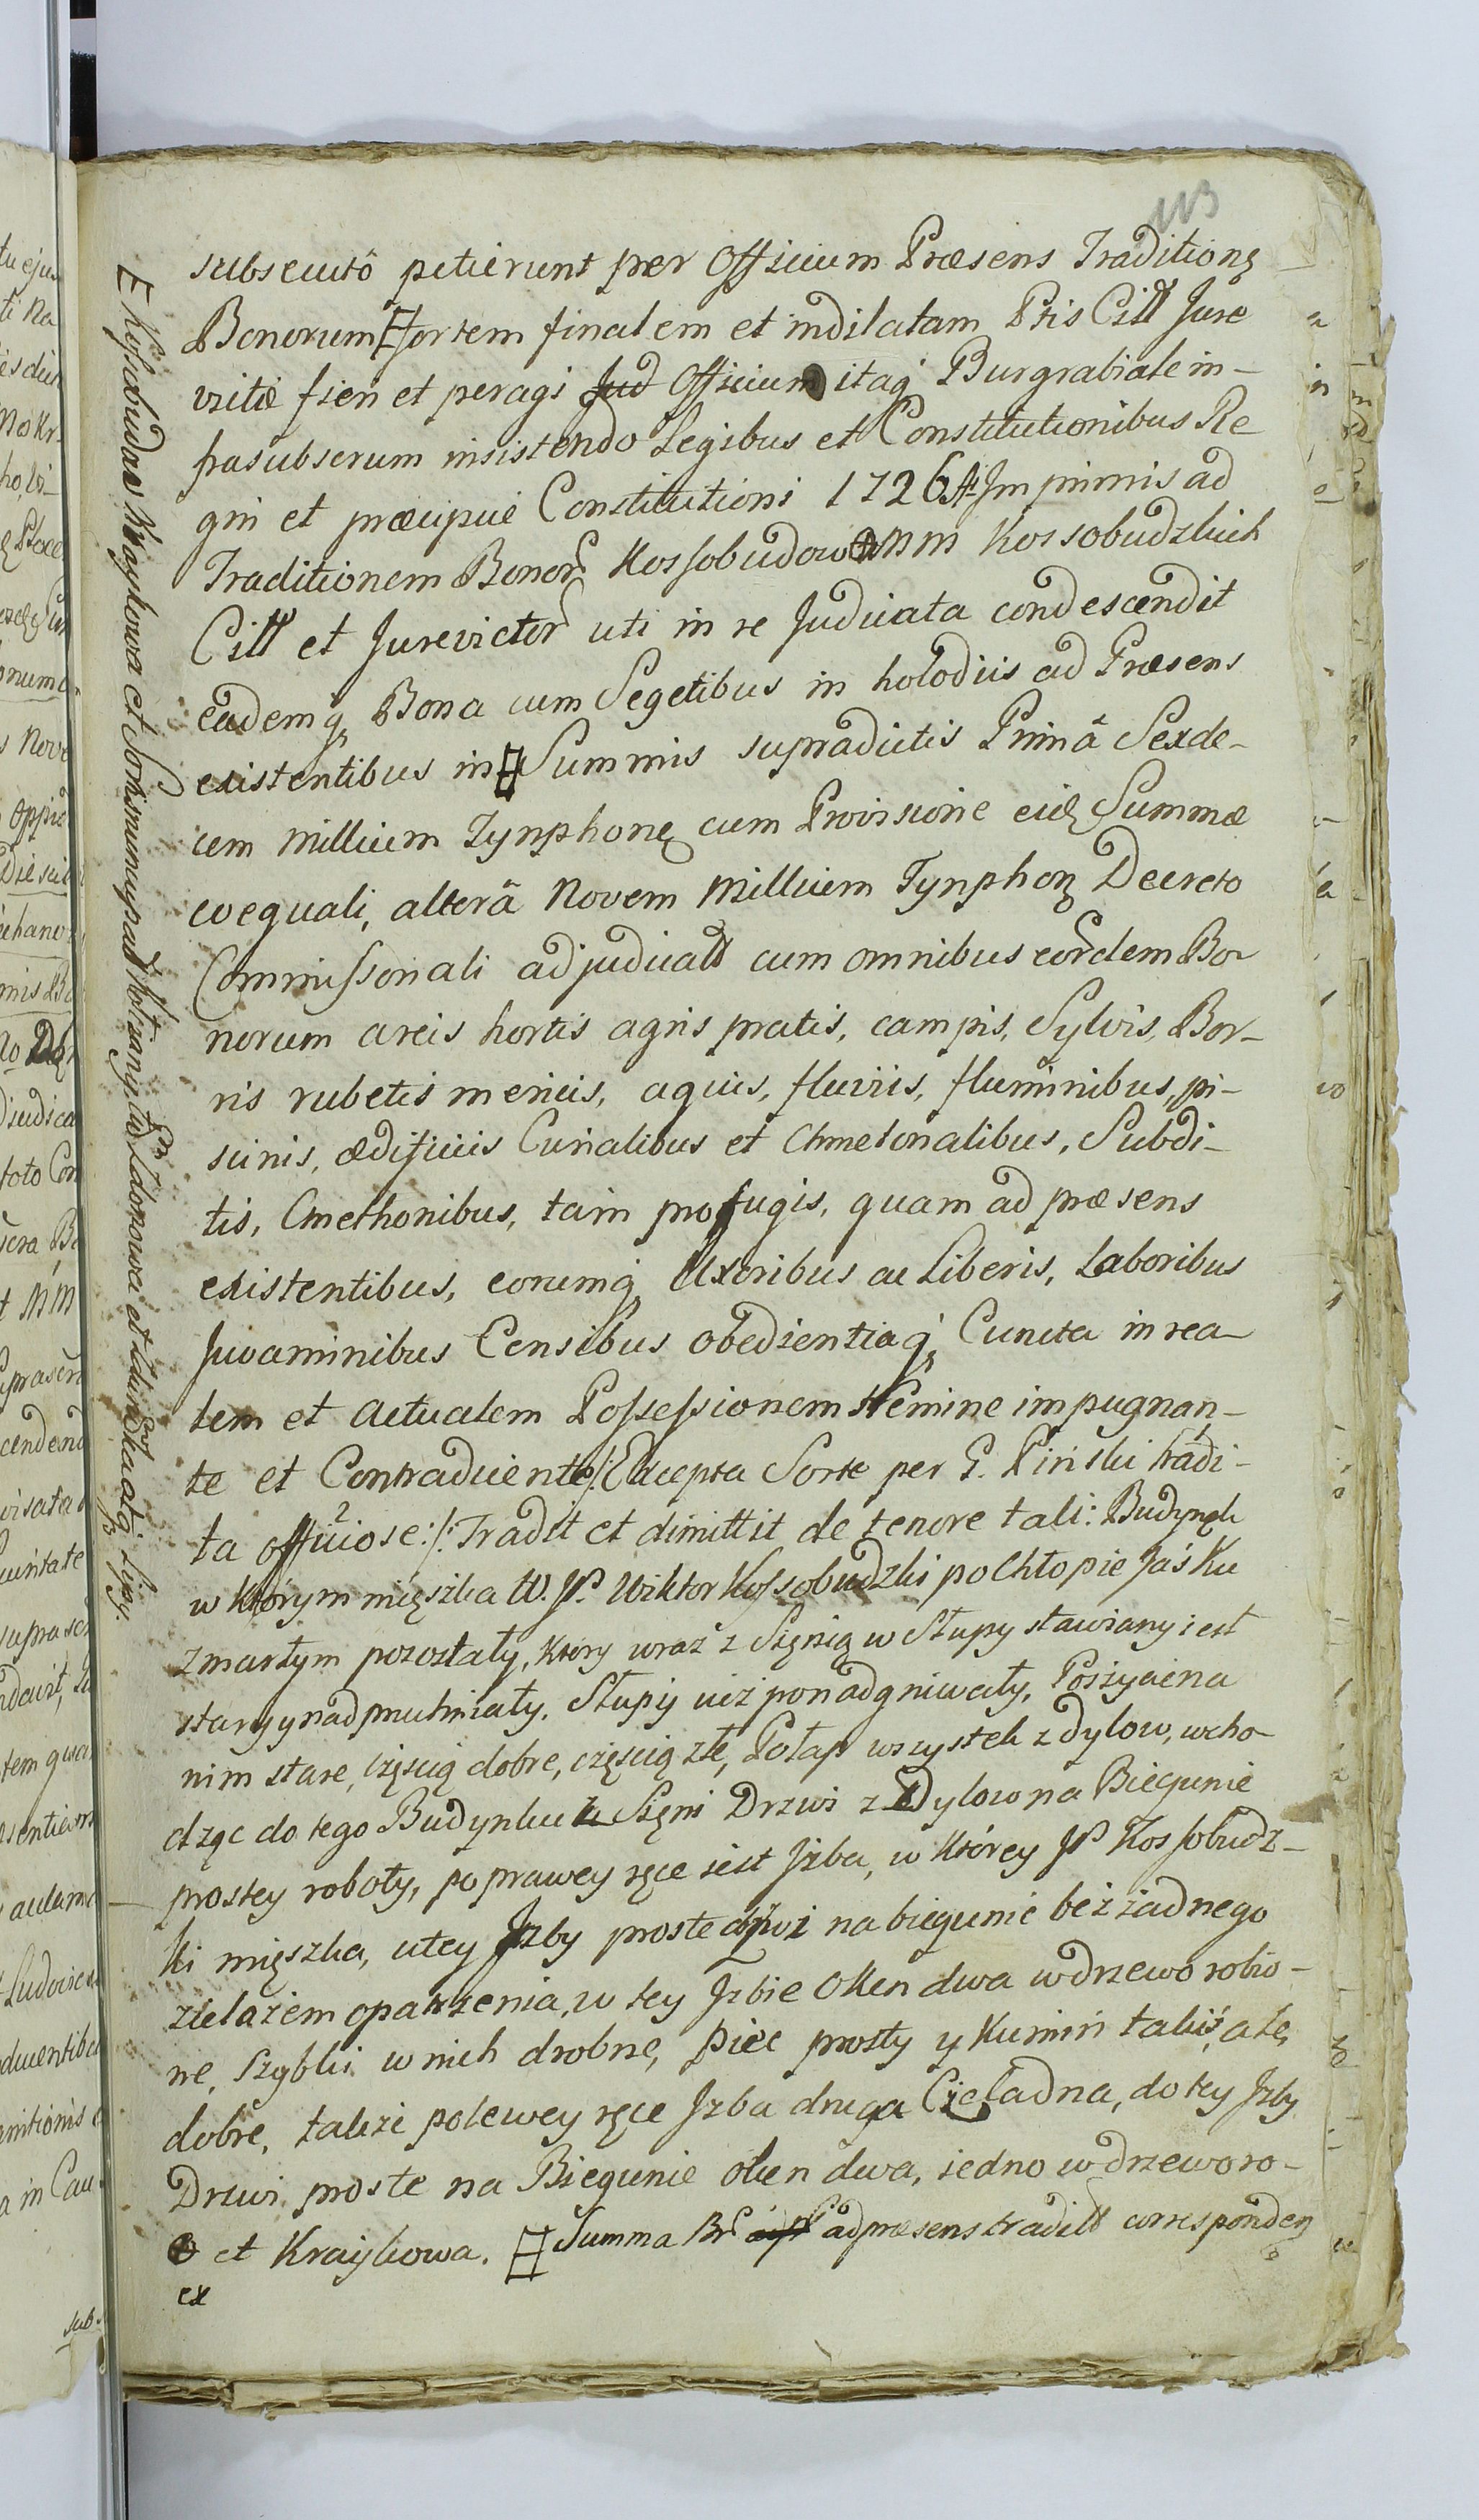 113
subsecutô petierunt per Officium Præsens Traditionę
Bonorum sortem finalem et indilatam Ptis Citt Jure
victæ fieri et peragi Jud Officium itaq Burgrabiale in-
frasubscrum insistendo Legibus et Constitutionibus Re
gni et præcipue Constitutioni 1726 Ai Imprimis ad
Traditionem Bonor Kossobudow MM Kossobudzkich
Citt et Jurevictor uti in re Judicata condescendit
eademq Bona cum Segetibus in holodiis ad Præsens
existentibus in Summis supradictis Primâ Sexde-
cem Millium Tynphonę cum Provisione eidę Summæ
coequali, alterâ Novem Millium Tynphonę Decreto
Commissoriali adjudicatt cum omnibus eordem Bo-
norum areis hortis agris pratis, campis, Sylvis, Bor-
ris rubetis mericis, aquis, fluviis, fluminibus, pi-
scinis, ædificiis Curialibus et Cmetonalibus, Subdi-
tis, Cmethonibus, tam profugis, quam ad præsens
existentibus, eorumq Uxoribus ac Liberis, Laboribus
Juvaminibus Censibus obedientiaq Cuncta in rea-
lem et actualem Possessionem Nemine impugnan-
te et Contradicente /: Excepta Sorte per G. Piński tradi-
ta officiose :/: Tradit et dimittit de tenore tali: Budynek
w Którym mięszka W. JP. Wiktor Kossobudzki po Chłopie Jaś Ku
zmarłym pozostały, Który wraz z Sięnią w Słupy stawiany iest
stary y nadpruchniały, Słupy iuż ponadgniwały, Poszycie na
nim stare, częscią dobre, częscią złe, Połap wszystek z dylow, wcho-
dząc do tego Budynku Sięni Drzwi z Dylow na Biegunie
prostey roboty, po prawey ręce iest Jzba, w Którey JP Kossobudz-
ki mięszka, u tey Jzby proste drzwi na biegunie bez żadnego
żelażem opatrzenia, w tey Jzbie Okien dwa w drzewo robio-
ne, Szybki w nich drobne, piec prosty y Kumin takiż, ale
dobre, także po lewey ręce Jzba druga Czeladna, do tey Jzby
Drzwi proste na Biegunie okien dwa, iedno w drzewo ro-
et Kraykowa. Summa Br ad præsens traditt correspondeų
ex
Kossobudzka Kraykowa et Sorti nuncupatt